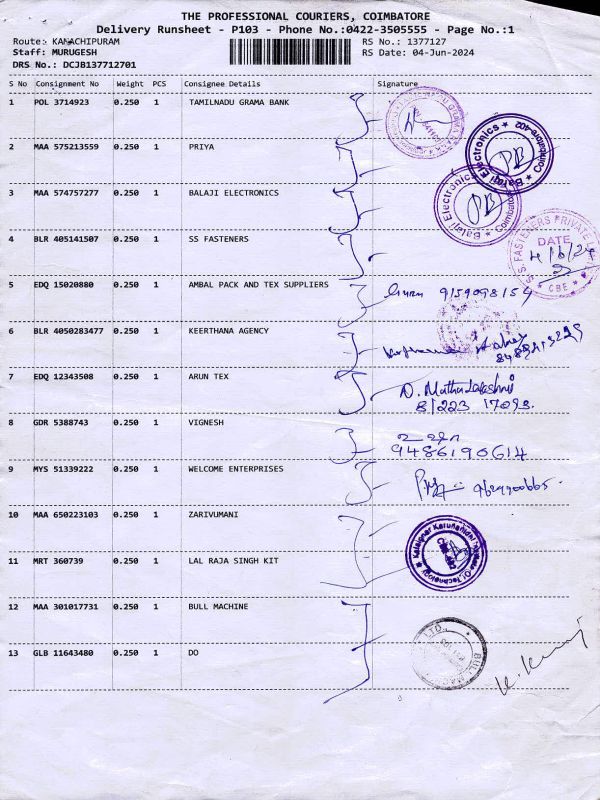 THE PROFESSIONAL COURIERS, COIMBATORE
Delivery Runsheet - P103 - Phone No.:0422-3505555 - Page No.:1
Route: KANACHIPURAM RS No.: 1377127
Staff: MURUGESH RS Date: 04-Jun-2024
DRS No.: DCJB137712701
S No Consignment No Weight PCS Consignee Details Signature
1 POL 3714923 0.250 1 TAMILNADU GRAMA BANK
2 MAA 575213559 0.250 1 PRIYA
Balaji Electronics * Coimbatore-402 *
3 MAA 574757277 0.250 1 BALAJI ELECTRONICS
Balaji Electronics * Coimbatore
4 BLR 405141507 0.250 1 SS FASTENERS
S.S FASTENERS PRIVATE
DATE
4/6/24
* CBE *
5 EDQ 15020880 0.250 1 AMBAL PACK AND TEX SUPPLIERS
Guru 9159098154
6 BLR 4050283477 0.250 1 KEERTHANA AGENCY
7 EDQ 12343508 0.250 1 ARUN TEX
N. Muthulakshmi
8 GDR 5388743 0.250 1 VIGNESH
9486190614
9 MYS 51339222 0.250 1 WELCOME ENTERPRISES
10 MAA 650223103 0.250 1 ZARIVUMANI
Kalaignar Karunanidhi Institute Of Technology
11 MRT 360739 0.250 1 LAL RAJA SINGH KIT
12 MAA 301017731 0.250 1 BULL MACHINE
13 GLB 11643480 0.250 1 DO